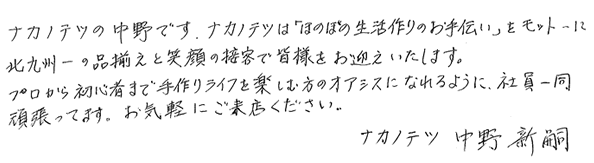 ナカノテツの中野です。ナカノテツは「ほのぼの生活作りのお手伝い」をモットーに
北九州一の品揃えと笑顔の接客で皆様をお迎えいたします。
プロから初心者まで手作りライフを楽しむ方のオアシスになれるように、社員一同
頑張ってます。お気軽にご来店ください。
ナカノテツ 中野 新嗣